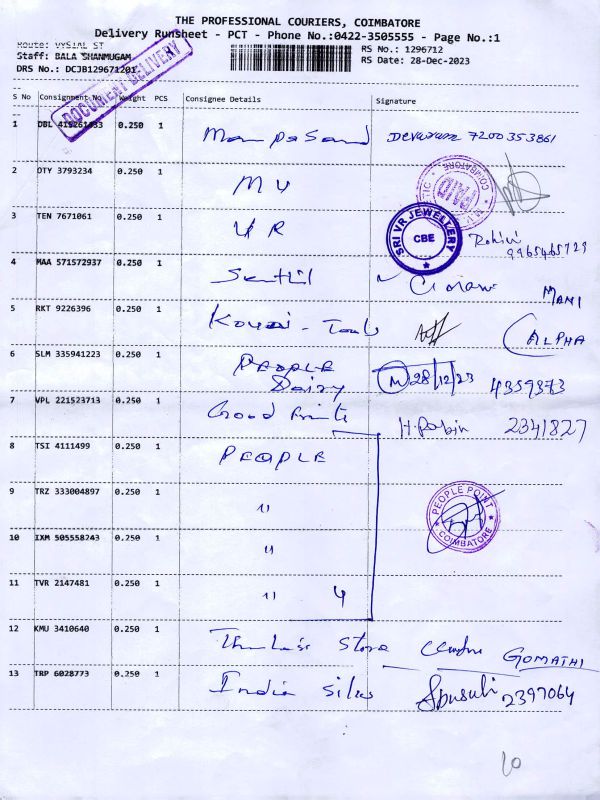 THE PROFESSIONAL COURIERS, COIMBATORE
Delivery Runsheet - PCT - Phone No.:0422-3505555 - Page No.:1
Route: VYSIAL ST
Staff: BALA SHANMUGAM
DRS No.: DCJB129671201
RS No.: 1296712
RS Date: 28-Dec-2023
DOCUMENT DELIVERY
S No Consignment No Weight PCS Consignee Details Signature
1 DBL 0.250 1 7200353861
2 DTY 3793234 0.250 1 M U
COIMBATORE
3 TEN 7671061 0.250 1 U R
SRI VR JEWELLERY
CBE
Rohini
9965465723
4 MAA 571572937 0.250 1 Senthil
MANI
5 RKT 9226396 0.250 1 ALPHA
6 SLM 335941223 0.250 1 PEOPLE
Dairy 28/12/23 4359373
7 VPL 221523713 0.250 1 Good Prints H.Robin 2341827
8 TSI 4111499 0.250 1 PEOPLE
9 TRZ 333004897 0.250 1 "
PEOPLE POINT
COIMBATORE
10 IXM 505558243 0.250 1 "
11 TVR 2147481 0.250 1 " 4
12 KMU 3410640 0.250 1 Store GOMATHI
13 TRP 6028773 0.250 1 India Silks 2397064